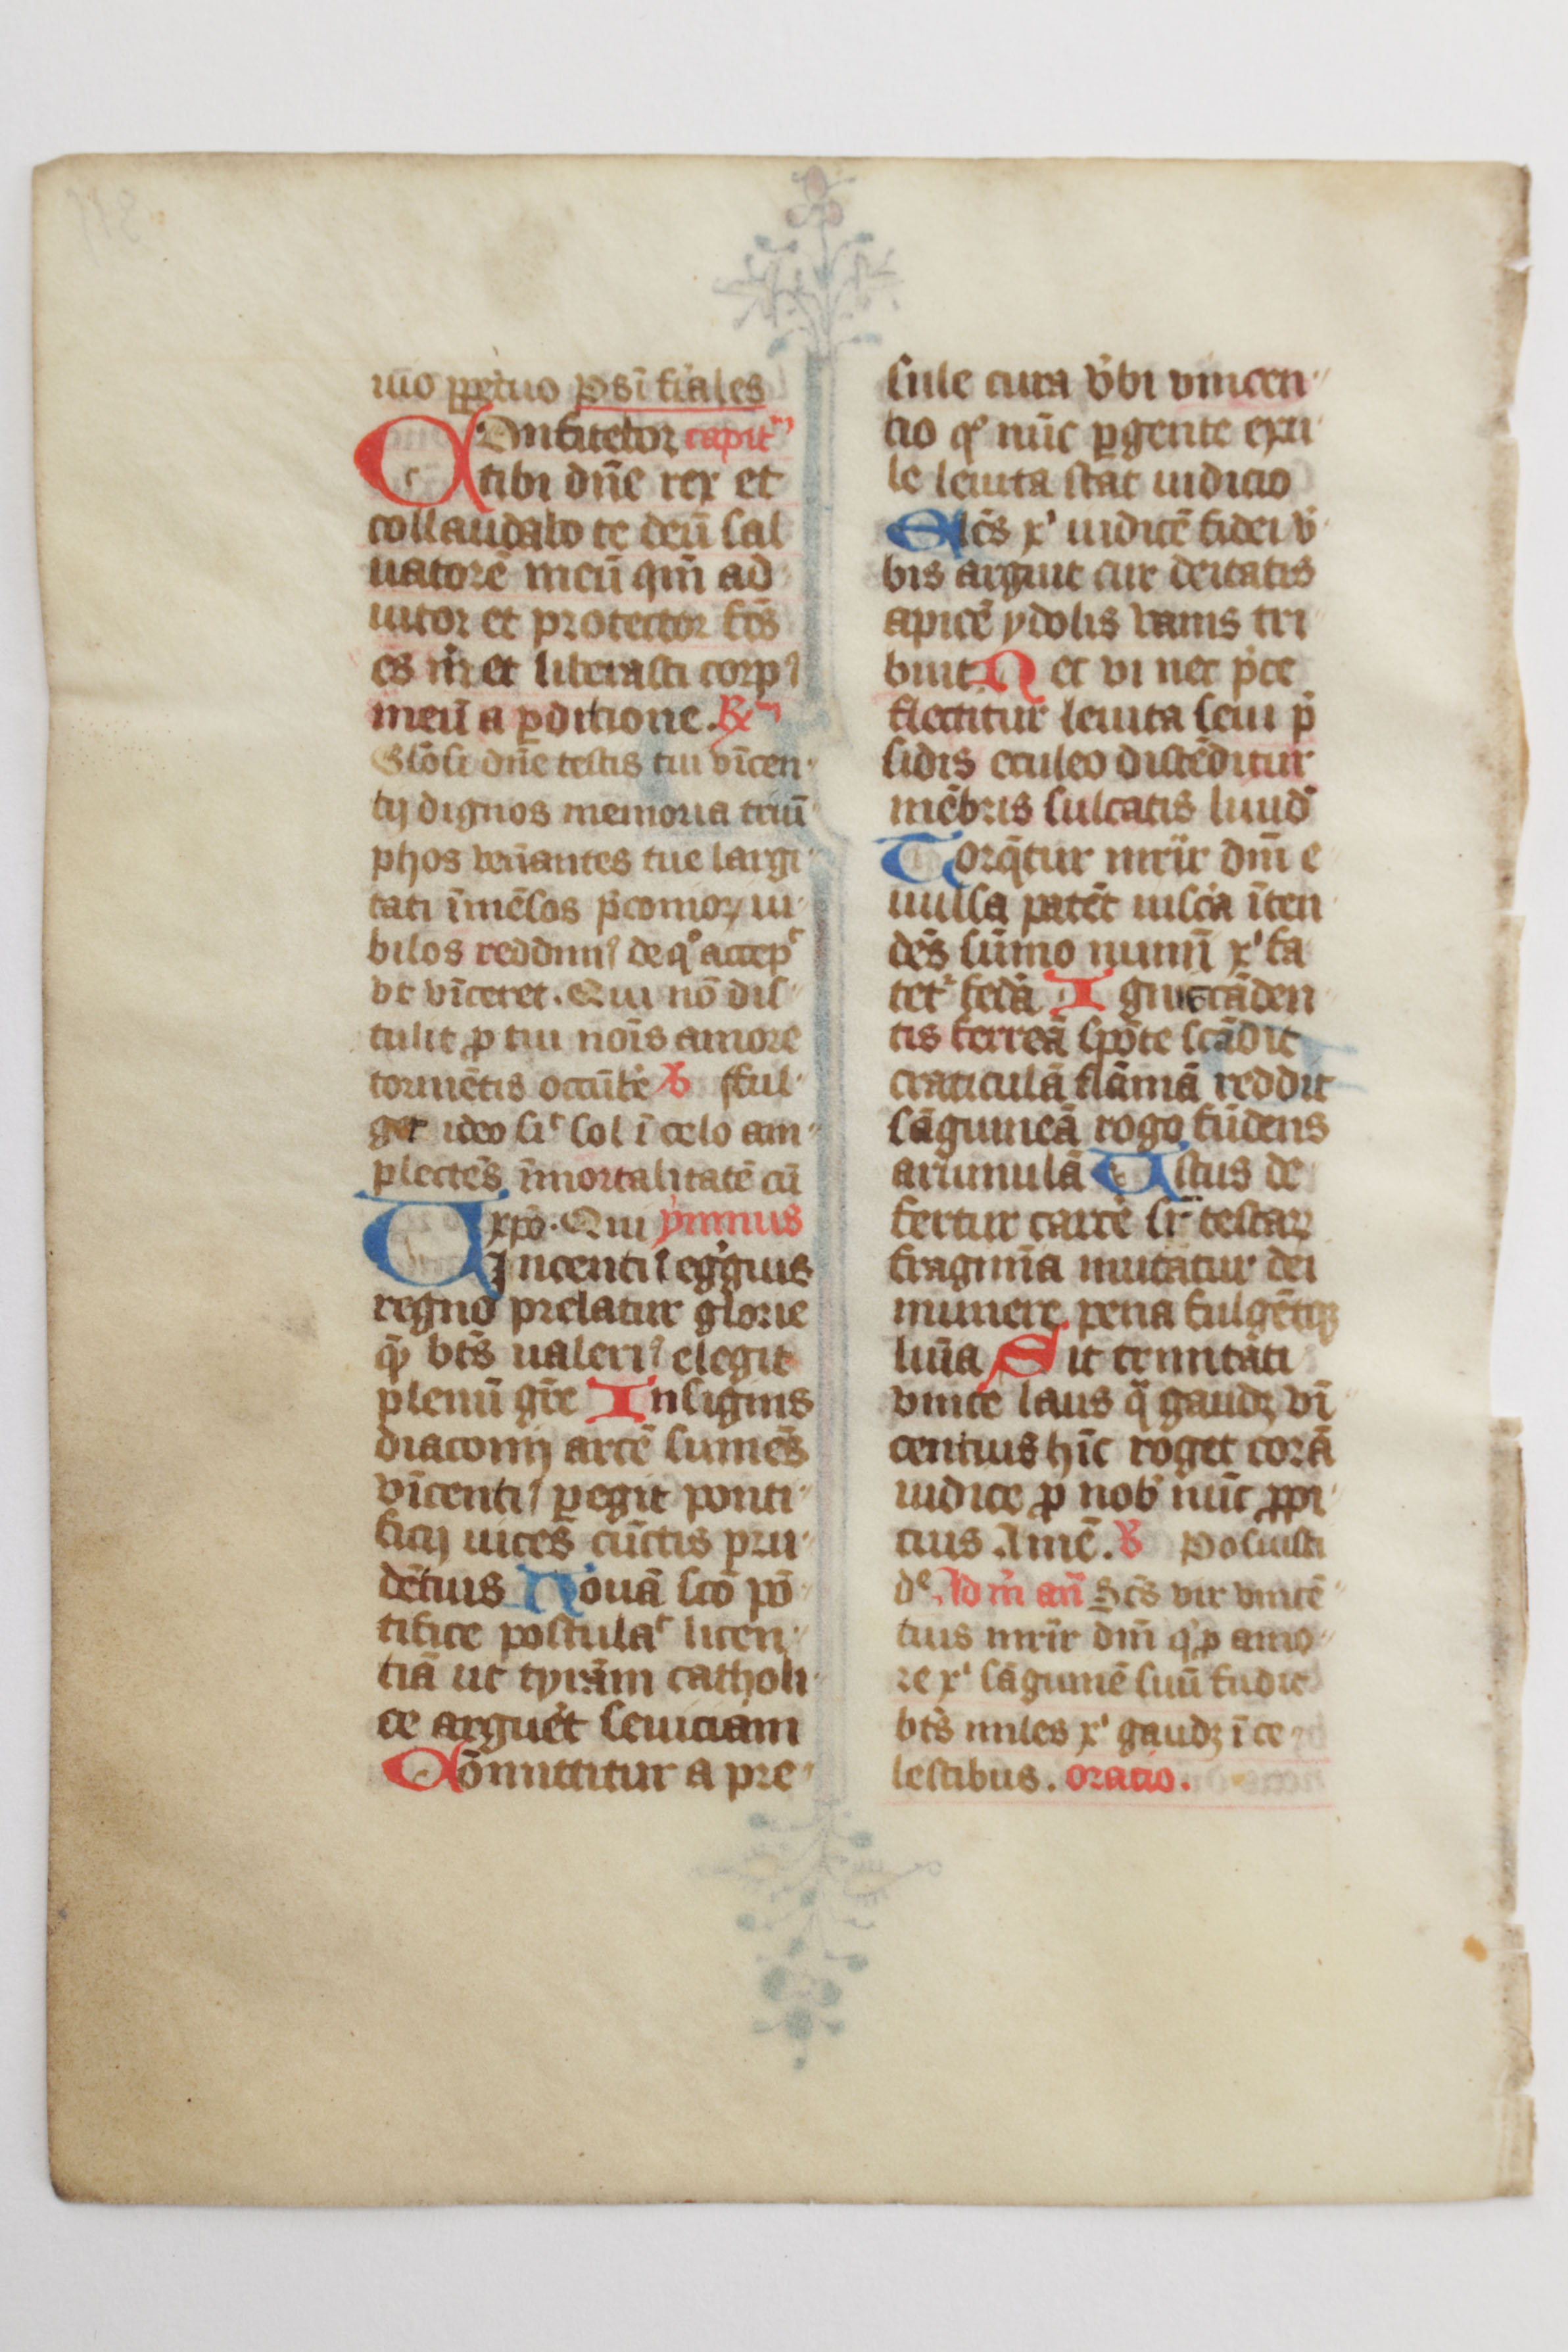 uio ꝑpetuo psi fiales
COnfitebor capitᵐ
tibi dn̄e rex et
collaudabo te deū sal
uatorē meū qm̄ ad
iutor et protector fcs̄
es m̄ et liberasti corpꝰ
meū a ꝑditione. R᷒
Glōse dn̄e testis tui vīcen
tij dignos memoria triū
phos venāntes tue largi
tati īmēsos p̄conioꝝ iu
bilos reddimꝰ de qͦ accepᵗ
vt vīceret. Qui nō dis
tulit ꝓ tui noīs amore
tormētis occūbe͛ ℣ fful
get ideo siᶜ sol ī celo am
plectēs īmortalitatē cū
xp̄o. Qui ymnus
Vincentiꝰ egᵍius
regno prelatur glorie
qͫ bt̄s ualeriꝰ elegit
plenū gr̄e Insignis
diaconij artē sumēs
vīcentiꝰ ꝑegit ponti
ficij uices cūctis pru
dētius Nouā scō pō
tifice postulaᵗ licen
tiā ut tyrām catholi
ce arguet seuiciam
Cōmittitur a pre
sule cura v͛bi vincen
tio qͦ nūc ꝑgente exi
le leuita stat iudicio
Ales xⁱ iudicē fidei v͛
bis arguit cur deitatis
apicē ydolis vanis tri
buit Nec vi nec p̄ce
flectitur leuita seui p̄
sidis eculeo distēditur
mēbris sulcatis liuid͛
Torq̄tur mr̄ir dn̄i e
uulsa patēt uisc͛a īten
dēs sūmo numī xⁱ fa
tetᷣ feda͛ Ignis cāden
tis ferreā spōte scādit
craticulā flāmā reddit
sāguineā rogo fūdens
ariumulā Vstus de
fertur carce͛ sr̄ testaꝝ
fragmīa mutātur dei
munere pena fulgētqꝫ
lim̄a Sit trinitati
vnice laus q̄ gaudꝫ vī
centius hīc roget corā
iudice ꝓ nob̄ nūc ꝓpi
cius Amē. ℣ Posuisti
dᵉ. Ad m̄ an̄ Scs̄ vir vincē
tius mr̄ir dn̄i qͥ ꝓ amo
re xⁱ sāguinē suū fudit
bt̄s miles xⁱ gaudꝫ ī ce
lestibus. oratio.